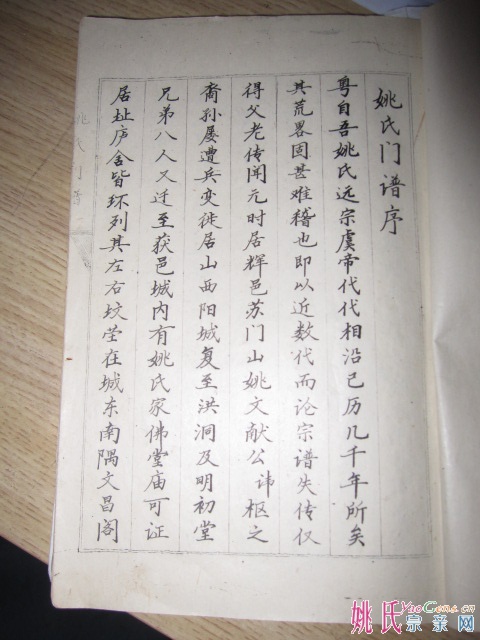 姚氏门谱序
粤自吾姚氏远宗虞帝代代相沿已历几千年所矣
其荒畧固甚难稽也即以近数代而论宗谱失传仅
得父老传闻元时居辉邑苏门山姚文献公讳枢之
裔孙屡遭兵变徙居山西阳城复至洪洞及明初堂
兄弟八人又迁至获邑城内有姚氏家佛堂庙可证
居址庐舍皆环列其左右坟茔在城东南隅文昌阁
姚氏门谱
姚氏YaoGens.cn
宗亲网